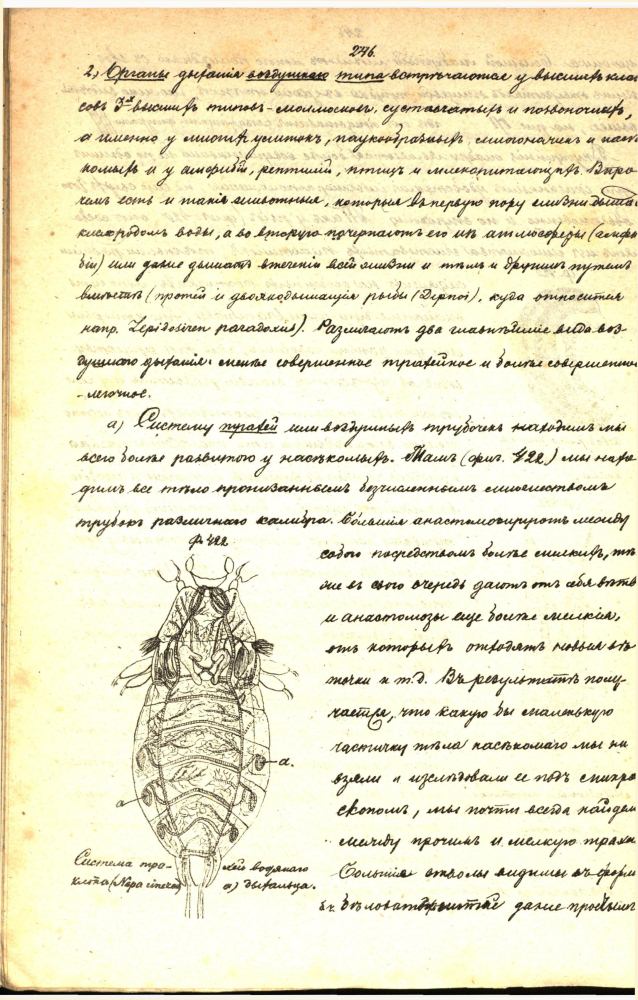 276.
2) Органы дыханія воздушнаго типа встрѣчаются у высшихъ клас
совъ 3х высшихъ типовъ - моллюсковъ, суставчатыхъ и позвоночныхъ,
а именно у многихъ улитокъ, паукообразныхъ, многоножекъ и насѣ
комыхъ и у амфибій, рептилій, птицъ и млекопитающихъ. Впро
чемъ есть и такія животныя, которыя въ первую пору жизни дышатъ
кислородомъ воды, а во вторую почерпаютъ его изъ атмосферы (амфи
біи) или даже дышатъ втеченіи всей жизни и тѣмъ и другимъ путемъ
вмѣстѣ (протей и двоякодышащія рыбы (Dipnoi), куда относится
напр. Lepidosiren paradoxus). Различаютъ два главнѣйшіе вида воз
душнаго дыханія: менѣе совершенное трахейное и болѣе совершенное
- легочное.
а) Систему трахей или воздушныхъ трубочекъ находимъ мы
всего болѣе развитою у насѣкомыхъ. Тамъ (фиг. 422) мы нахо
димъ все тѣло пронизаннымъ безчисленнымъ множествомъ
трубокъ различнаго калибра. Большія анастомозируютъ между
Ф. 422.
собою посредствомъ болѣе мелкихъ, тѣ
же въ свою очередь даютъ отъ себя вѣтви
и анастомозы еще болѣе мелкія,
отъ которыхъ отходятъ новыя вѣ
точки и т.д. Въ результатѣ полу
чается, что какую бы маленькую
частичку тѣла насѣкомаго мы ни
взяли и изслѣдовали ее подъ микро
скопомъ, мы почти всегда найдемъ
между прочимъ и мелкую трахею.
Большія стволы видимы въ форм
даже
а.
а
Система тра-
хей водянаго
клопа (Nepa cinerea)
а) дыхальца.